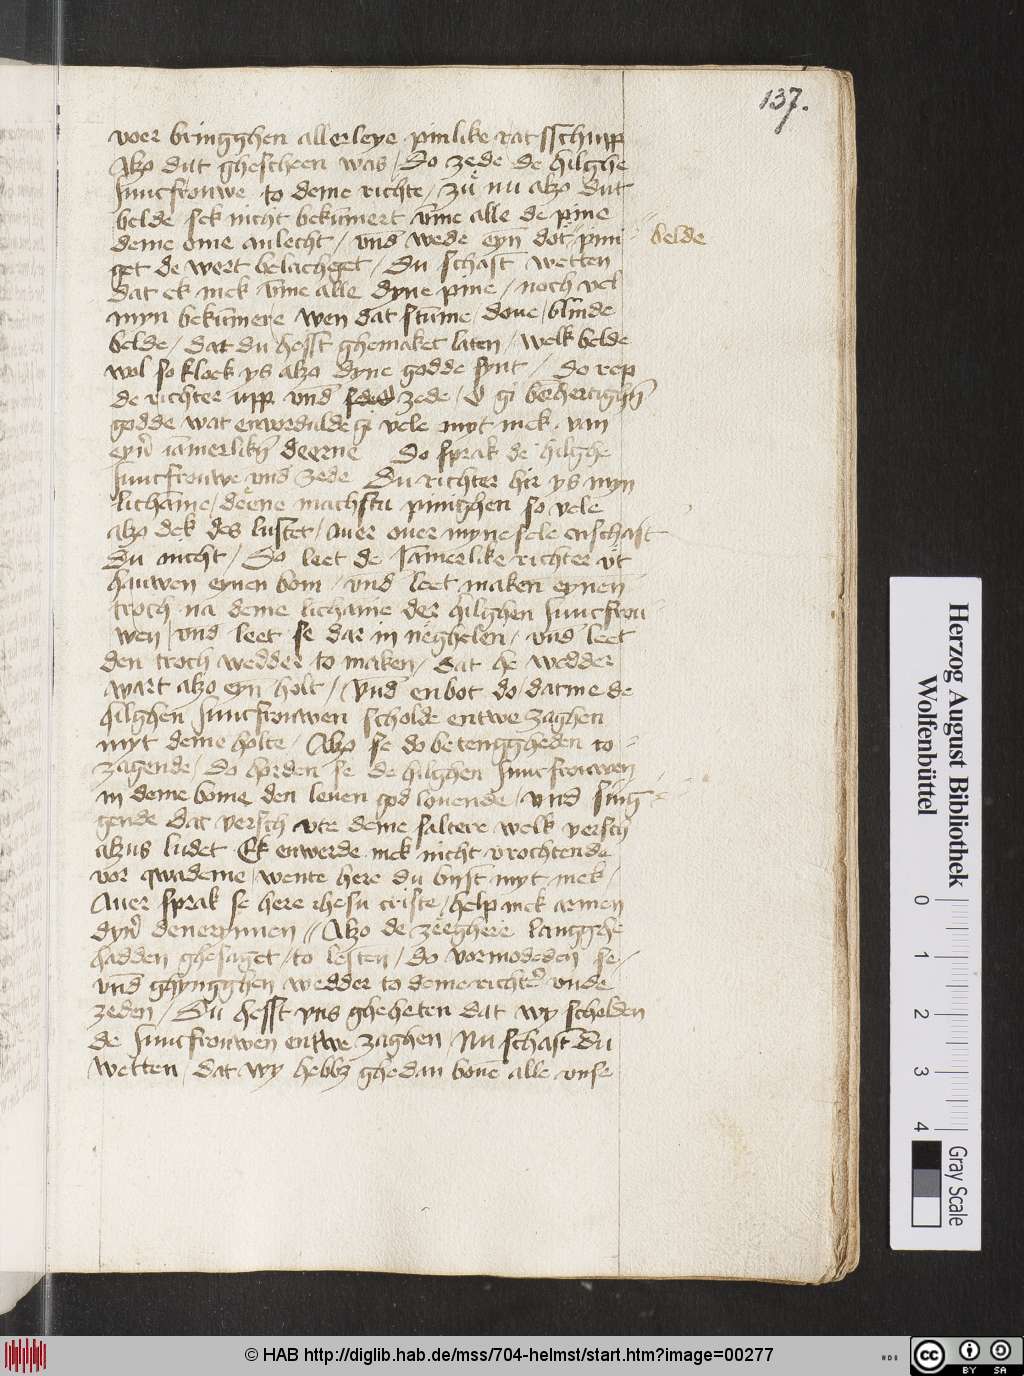 137.
voer bringghen allerleye pinlike ratsschupp
Alzo dut ghescheen was / Do zede de hilghe
Juncfrouwe to deme richte / zu nu alzo dut
belde sek nicht bekūmert vm̄e alle de pine
deme ome anlecht / vnd wede eyn dot pini-
belde
get de wert belacheget / Du schast wetten
dat ek mek vm̄e alle dyne pine / noch vel
myn bekūmere wen dat stūme doue / blinde
belde / dat du hefst ghemaket laten / welk belde
wol so klock ys alzo dyne godde synt / Do rep
de richter upp vnd zede / O gi
godde wat enwordulde gi vele myt mek van
eyn' iāmerlikē deerne Do sprak de hilghe
Juncfrouwe vnd zede Du richter hir ys myn
lichame / deene machstu pinighen so vele
alzo dek des lustet / Auer ouer myne sele enschast
Du nicht / Do leet de Jāmerlike richter vt
hauwen eynen bom / vnd leet maken eynen
troch na deme lichame der hilghen Juncfrou-
wen / vnd leet se dar in neghelen / vnd leet
den troch wedder to maken / dat he wedder
wart alzo eyn holt / Vnd enbot do / datme de
hilghen Juncfrouwen scholde entwe zaghen
myt deme holte / Alzo se do betenggheden to
zagende / Do horden se de hilghen Juncfrouwen
in deme bome den leuen god louende / vnd sing-
gende dat versch vte deme saltere welk versch
alzus ludet Ek enwerde mek nicht vrochtende
vor qwademe / wente here du byst myt mek /
Auer sprak se here ihesu criste / help mek armen
dyn' denerynnen // Alzo de zeeghere langghe
hadden ghesaget / to lesten / do vormodeden se /
vnd ghyngghen wedder to deme richt' vnde
zeden / Du hefst vns gheheten dat wy scholden
de Juncfrouwen entwe zaghen / Nu schast du
wetten / dat wy hebbz ghedan bouē alle vnse
Herzog August Bibliothek
Wolfenbüttel
0 1 2 3 4
Gray Scale
© HAB http://diglib.hab.de/mss/704-helmst/start.htm?image=00277
HDB
cc BY SA